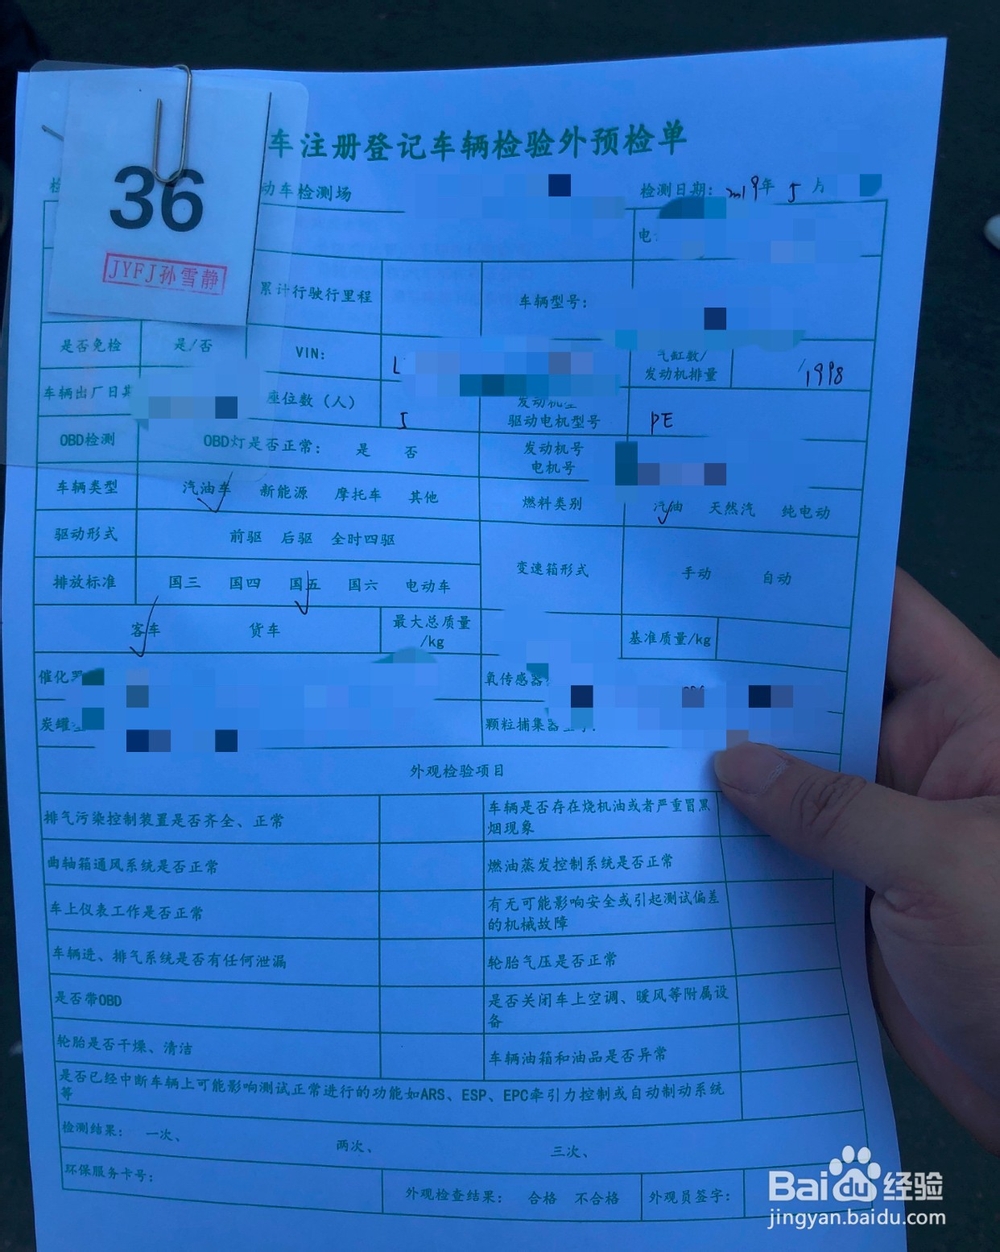 车注册登记车辆检验外预检单
36
JYFJ孙雪静
动车检测场
检测日期: 2019年 5月
电:
累计行驶行里程
车辆型号:
是否免检 是/否 VIN: L
气缸数/
发动机排量 /1998
车辆出厂日期 座位数（人） 5
驱动电机型号 PE
OBD检测 OBD灯是否正常: 是 否
发动机号
电机号
车辆类型 汽油车 新能源 摩托车 其他
燃料类别 汽油 天然汽 纯电动
驱动形式 前驱 后驱 全时四驱
变速箱形式 手动 自动
排放标准 国三 国四 国五 国六 电动车
客车 货车
最大总质量
/kg
基准质量/kg
催化
氧传感器
炭罐
颗粒捕集器
外观检验项目
排气污染控制装置是否齐全、正常
车辆是否存在烧机油或者严重冒黑
烟现象
曲轴箱通风系统是否正常
燃油蒸发控制系统是否正常
车上仪表工作是否正常
有无可能影响安全或引起测试偏差
的机械故障
车辆进、排气系统是否有任何泄漏
轮胎气压是否正常
是否带OBD
是否关闭车上空调、暖风等附属设
备
轮胎是否干燥、清洁
车辆油箱和油品是否异常
是否已经中断车辆上可能影响测试正常进行的功能如ARS、ESP、EPC牵引力控制或自动制动系统
等
检测结果: 一次、 两次、 三次、
环保服务卡号:
外观检查结果: 合格 不合格 外观员签字:
Baidu经验
jingyan.baidu.com